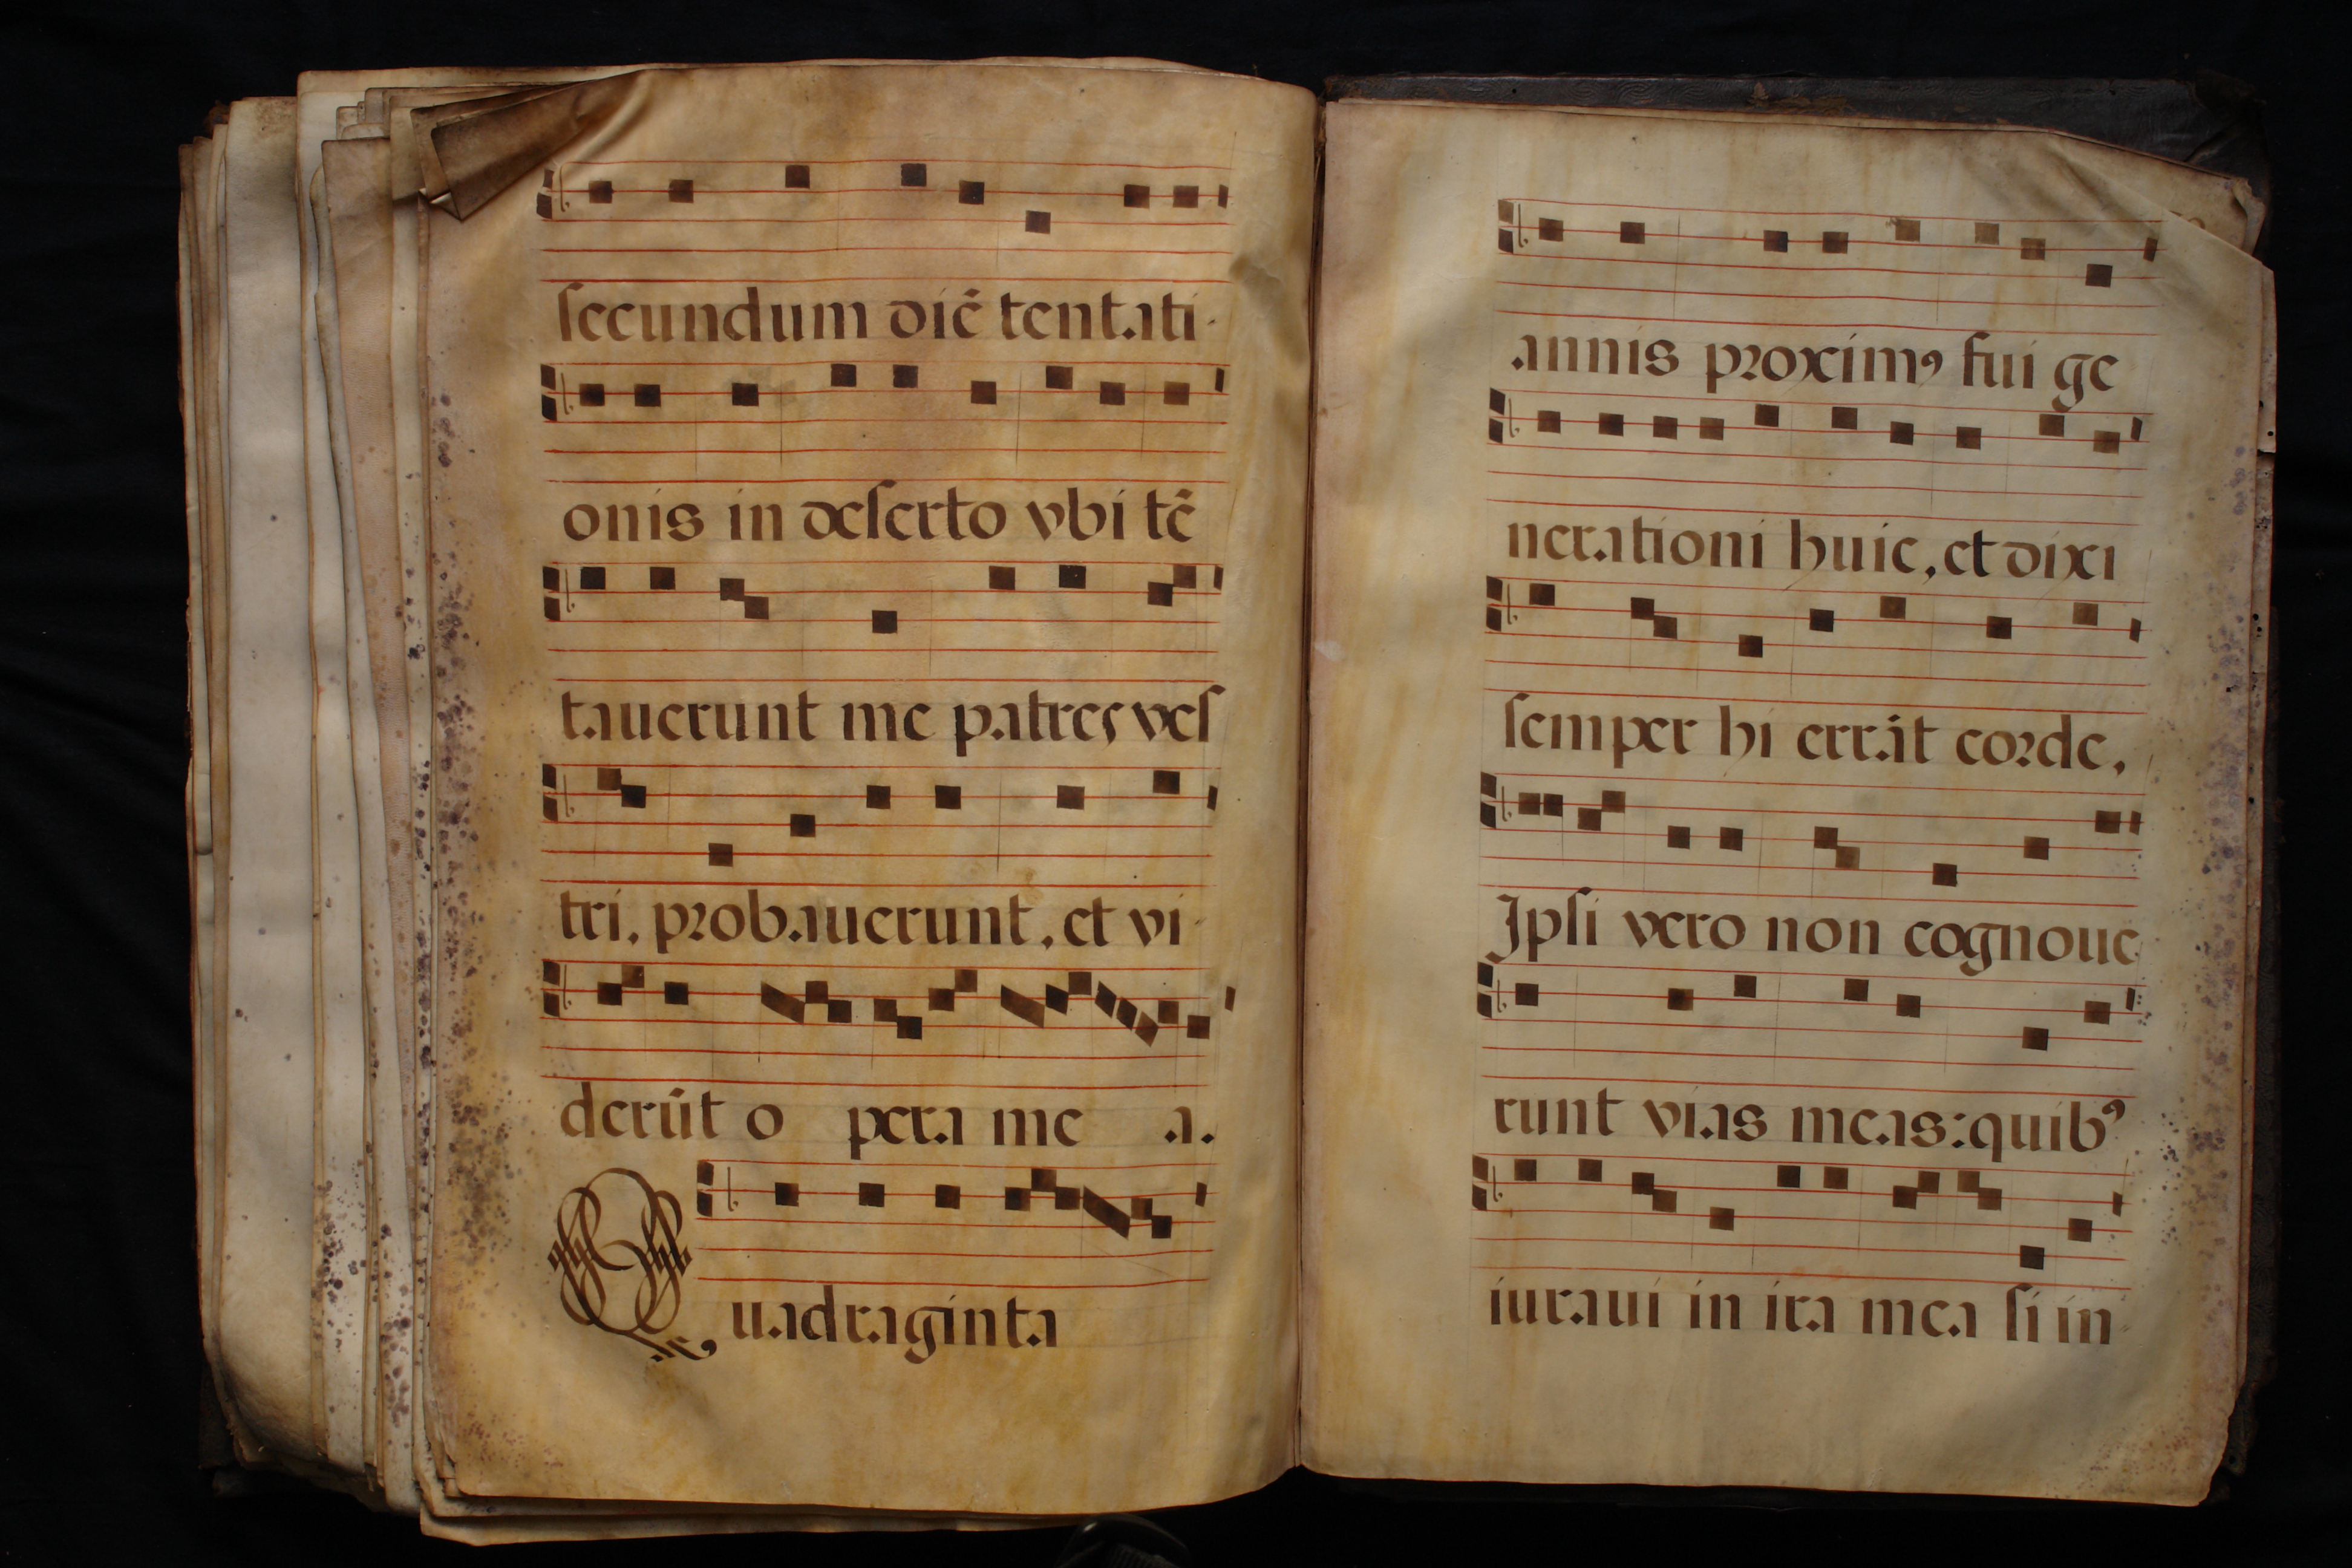 secundum diē tentati-
onis in deserto vbi tē
tauerunt me patres ves
tri, probauerunt, et vi-
derūt o pera me a.
Quadraginta
annis proximꝰ fui ge
nerationi huic, et dixi
semper hi errāt corde,
Ipsi vero non cognoue
runt vias meas: quibꝰ
iuraui in ira mea si in